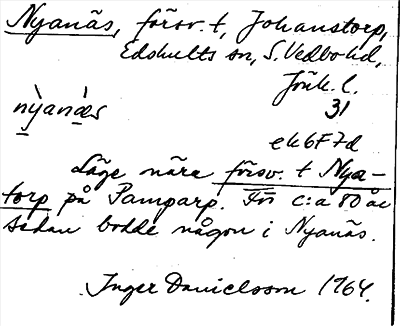 Nyanäs, försv. t, Johanstorp,
Edshults sn, S. Vedbo hd,
Jönk. l.
31
nỳanä̀s
ek6F7d
Läge nära försv. t Nya-
torp på Pamparp. För c:a 80 år
sedan bodde någon i Nyanäs.
Inger Danielsson 1964.